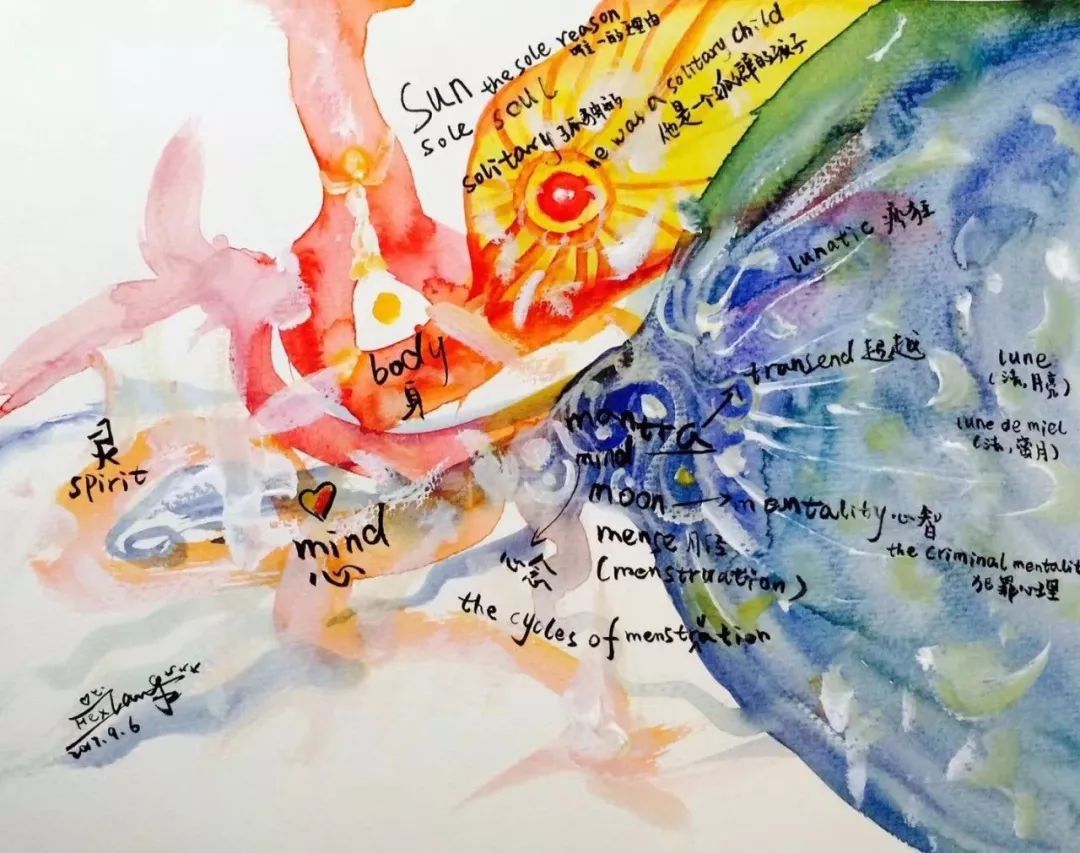 Sun the sole reason
唯一的理由
sole soul
solitary 孤独的
he was a solitary child
他是一个孤僻的孩子
lunatic 疯狂
body
身
transend 超越
lune
(法,月亮)
lune de miel
(法,蜜月)
mantra
mind
moon → mentality 心智
the criminal mentalit
犯罪心理
mense 月经
(menstruation)
心咒
the cycles of menstruation
灵
spirit
mind
心
2017.9.6